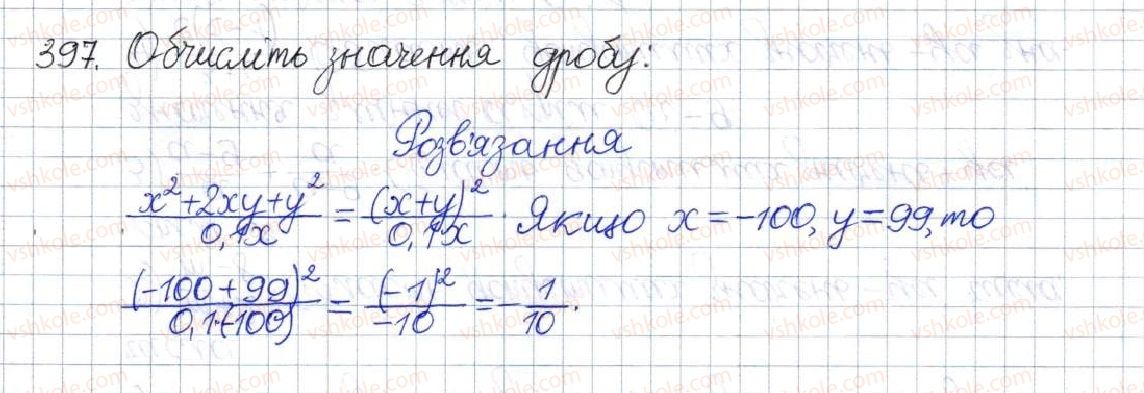 397. Обчисліть значення дробу:
Розв'язання
(x²+2xy+y²)/(0,1x) = (x+y)²/(0,1x). Якщо x=-100, y=99, то
(-100+99)²/(0,1·(-100)) = (-1)²/(-10) = -1/10.